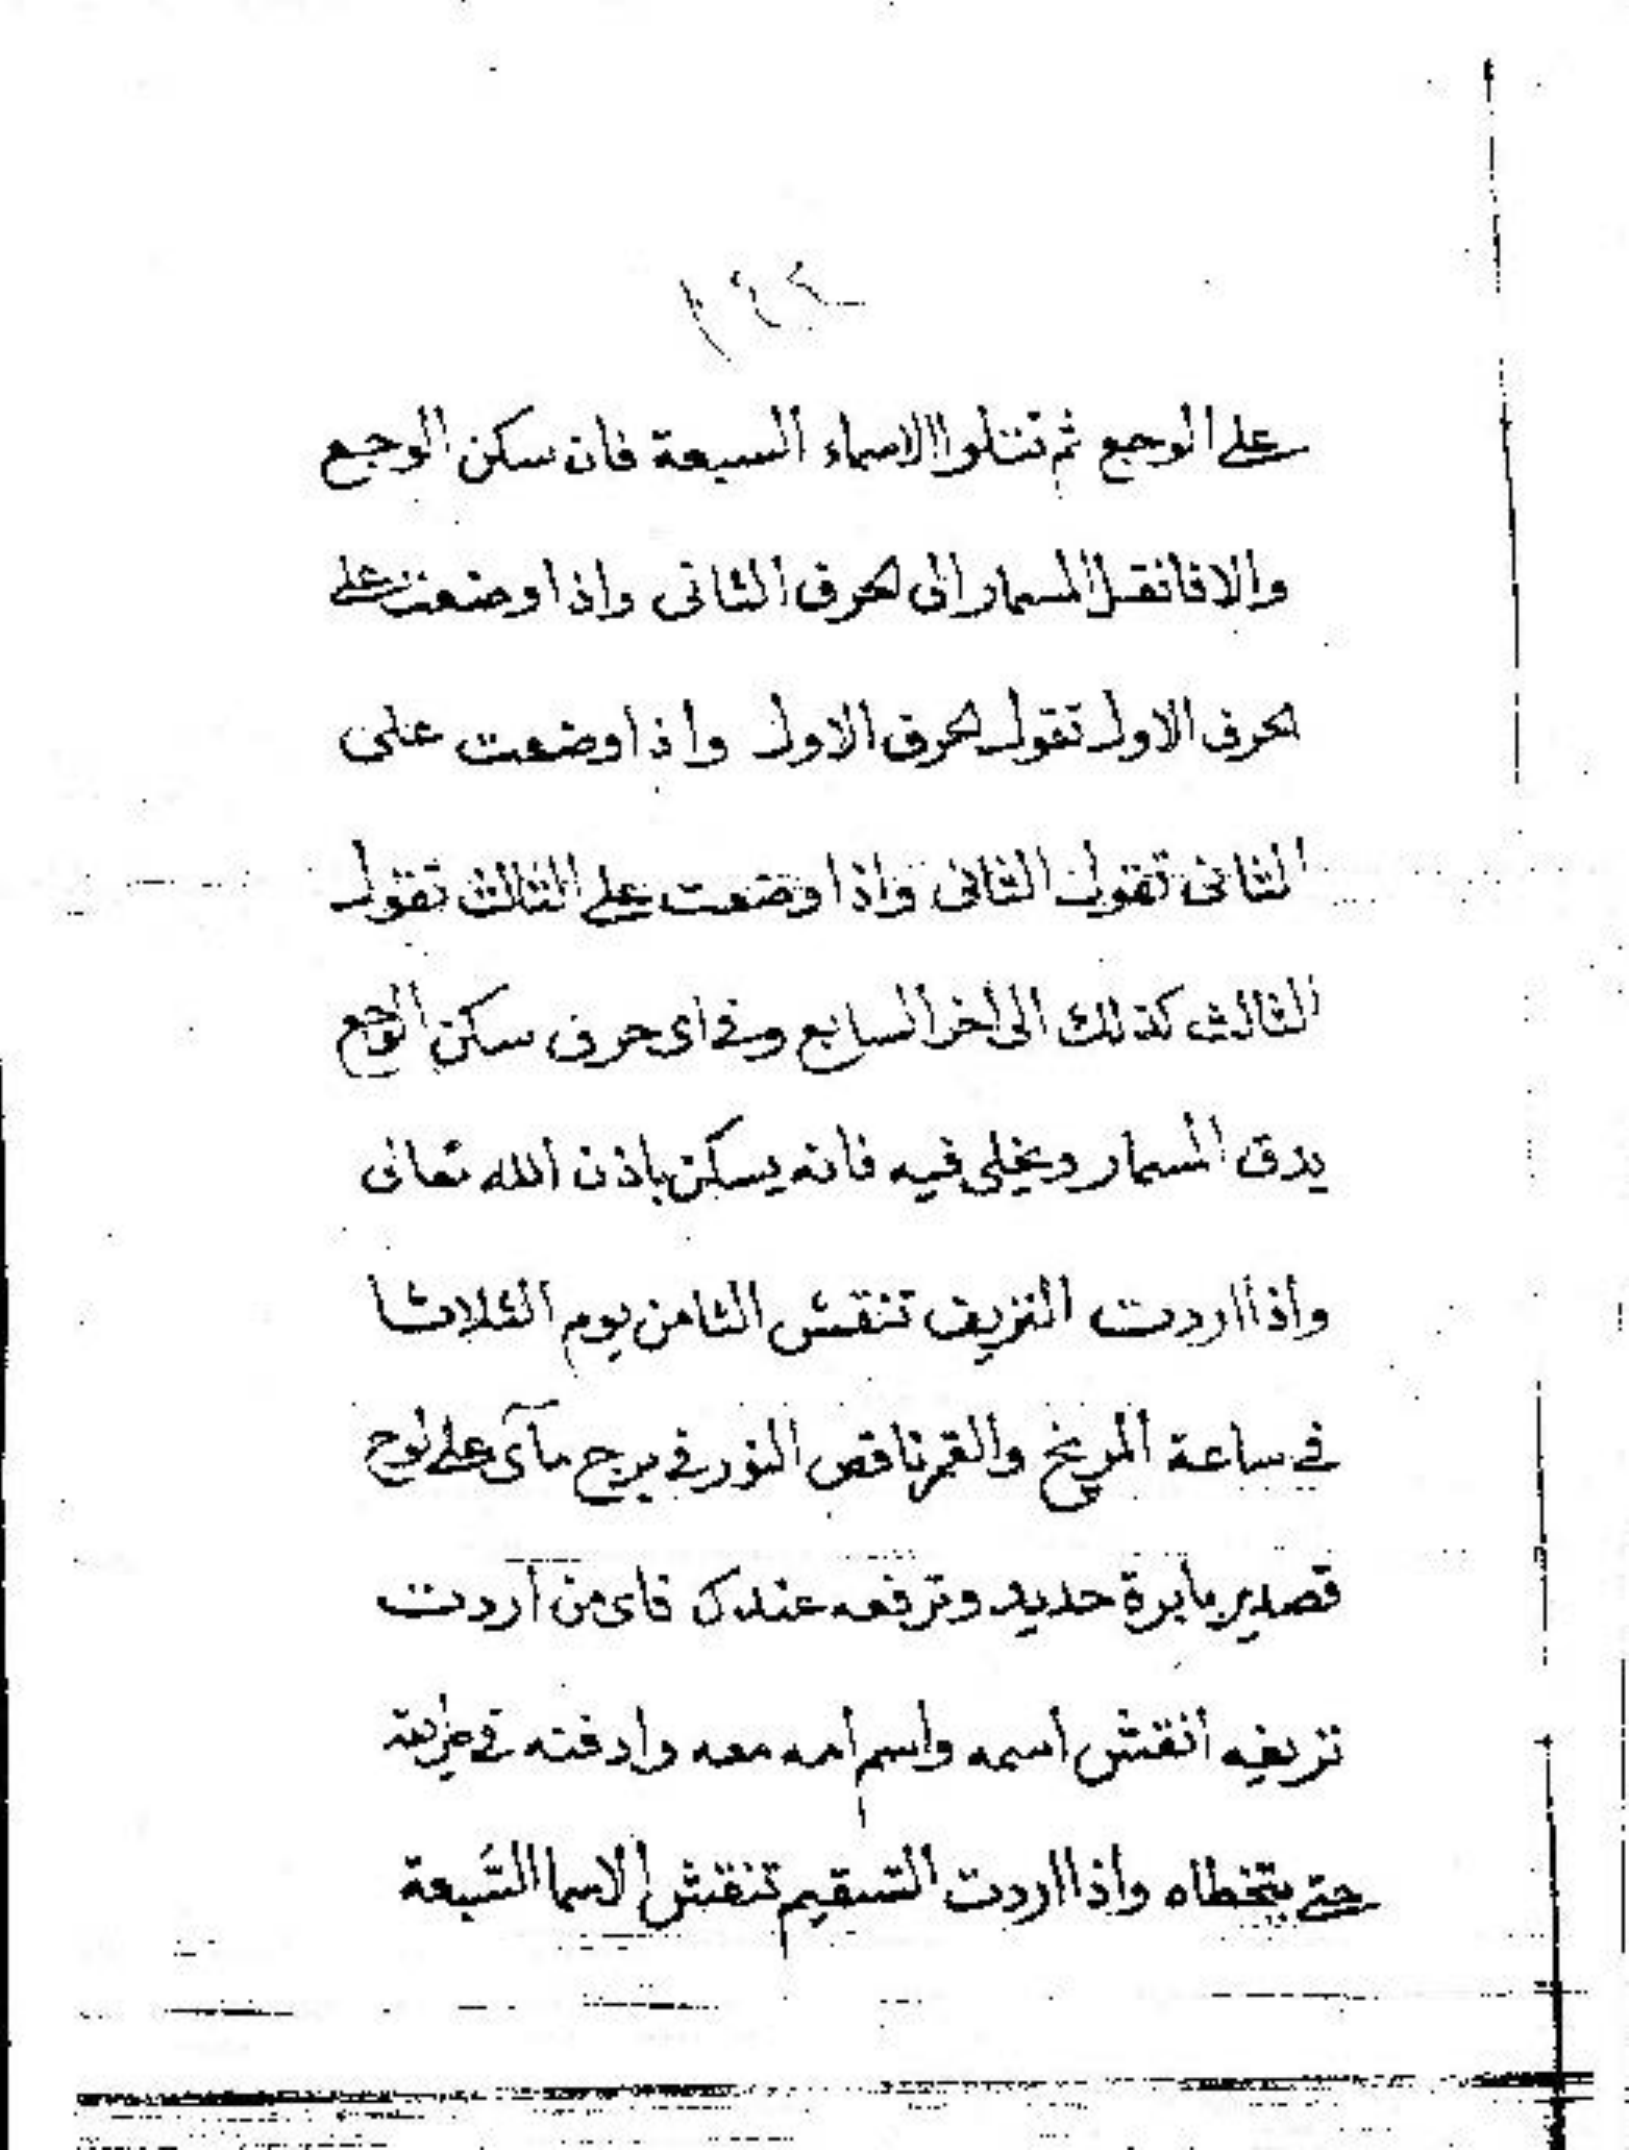 ١٤٢
على الوجع ثم تتلوا الاسماء السبعة فان سكن الوجع
والا فانقل المسمار الى الحرف الثانى واذا وضعت على
الحرف الاول تقول الحرف الاول واذا وضعت على
الثانى تقول الثانى واذا وضعت على الثالث تقول
الثالث كذلك الى اخر السابع وفى اى حرف سكن الوجع
يدق المسمار ويخلى فيه فانه يسكن باذن الله تعالى
واذا اردت النزيف تنقش الثامن يوم الثلاثا
فى ساعة المريخ والقمر ناقص النور فى برج مآى على لوح
قصدير بابرة حديد وترفعه عندك فاى من اردت
نزيفه انقش اسمه واسم امه معه وادفنه فى
حتى يتخطاه واذا اردت التسقيم تنقش الاسما السَّبعة